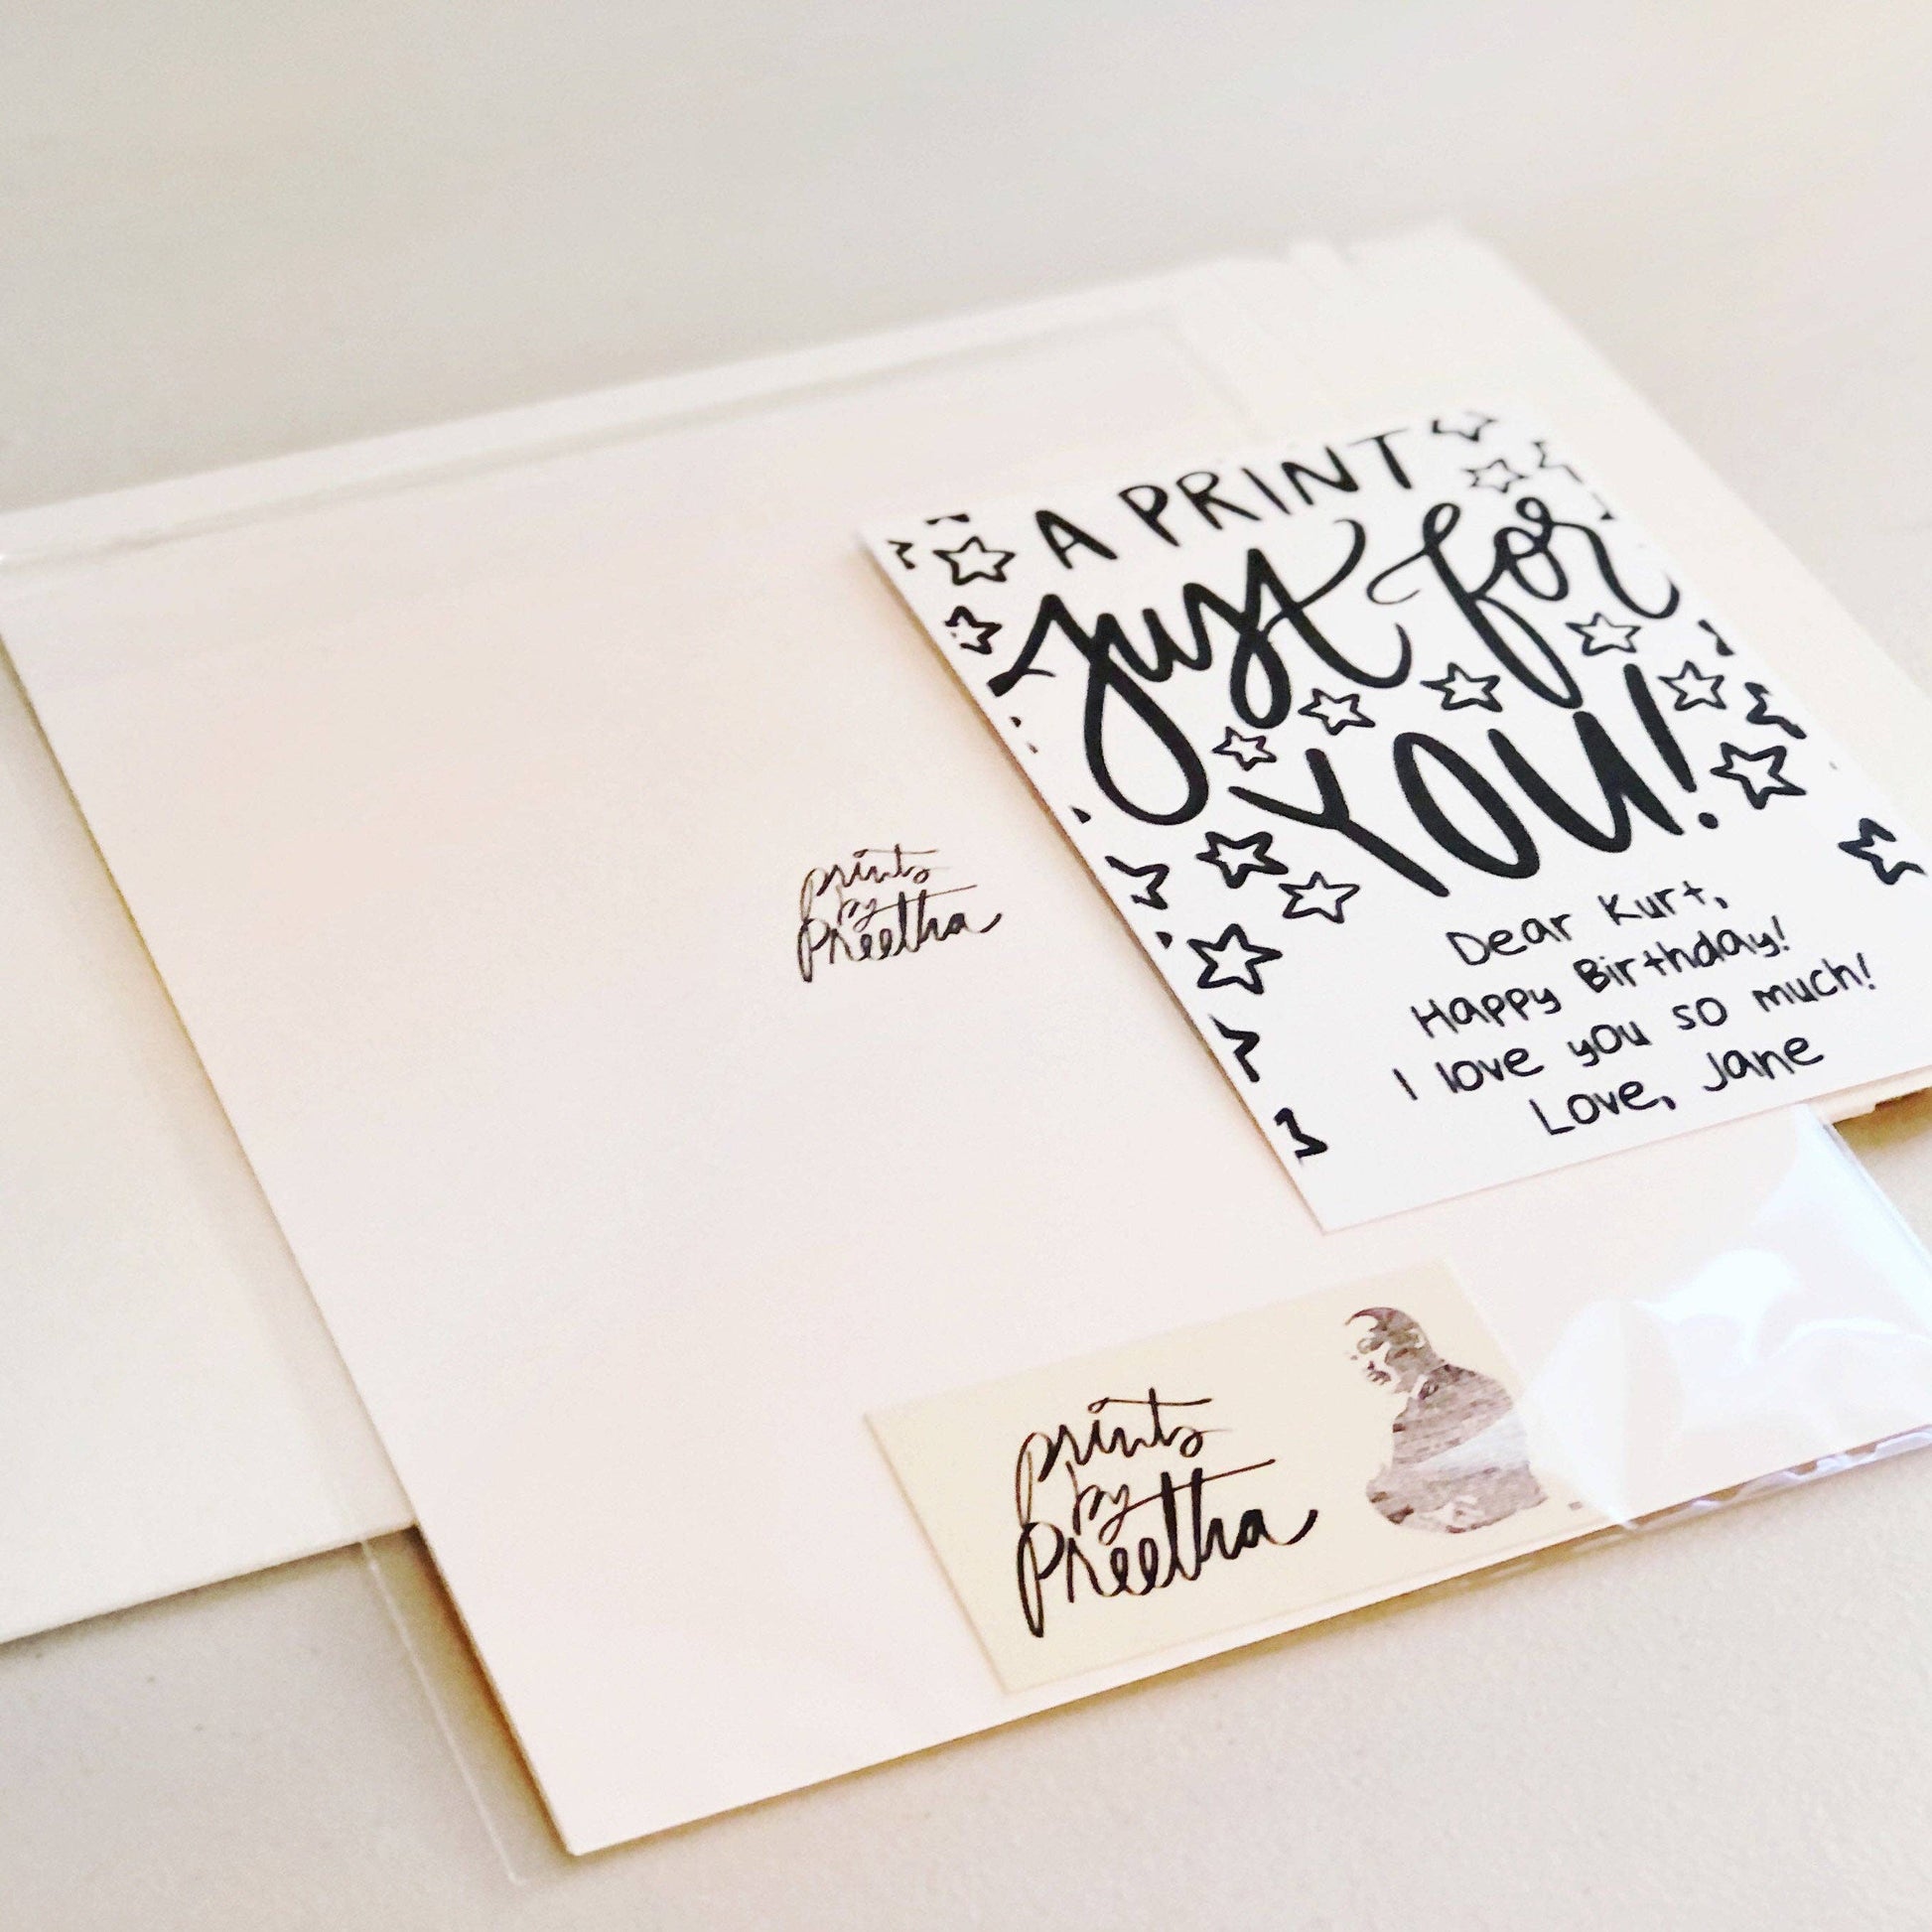 A PRINT
just for
YOU!
Dear Kurt,
Happy Birthday!
I love you so much!
Love, Jane
prints
by
Preetha
prints
by
Preetha